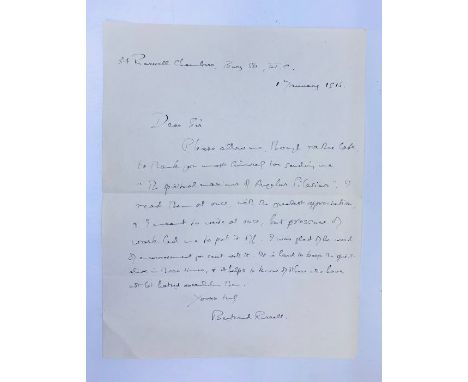 34 Russell Chambers, Bury St, W.C.
1 January 1916.
Dear Sir
Please allow me, though rather late,
to thank you most sincerely for sending me
"The spiritual maxims of Angelus Silesius". I
read them at once with the greatest appreciation,
& I meant to write at once, but pressure of
work led me to put it off. I was glad of the word
of encouragement you sent with it. It is hard to keep the
alive in these times, & it helps to know of others who have
not let hatred them.
Yours truly
Bertrand Russell.